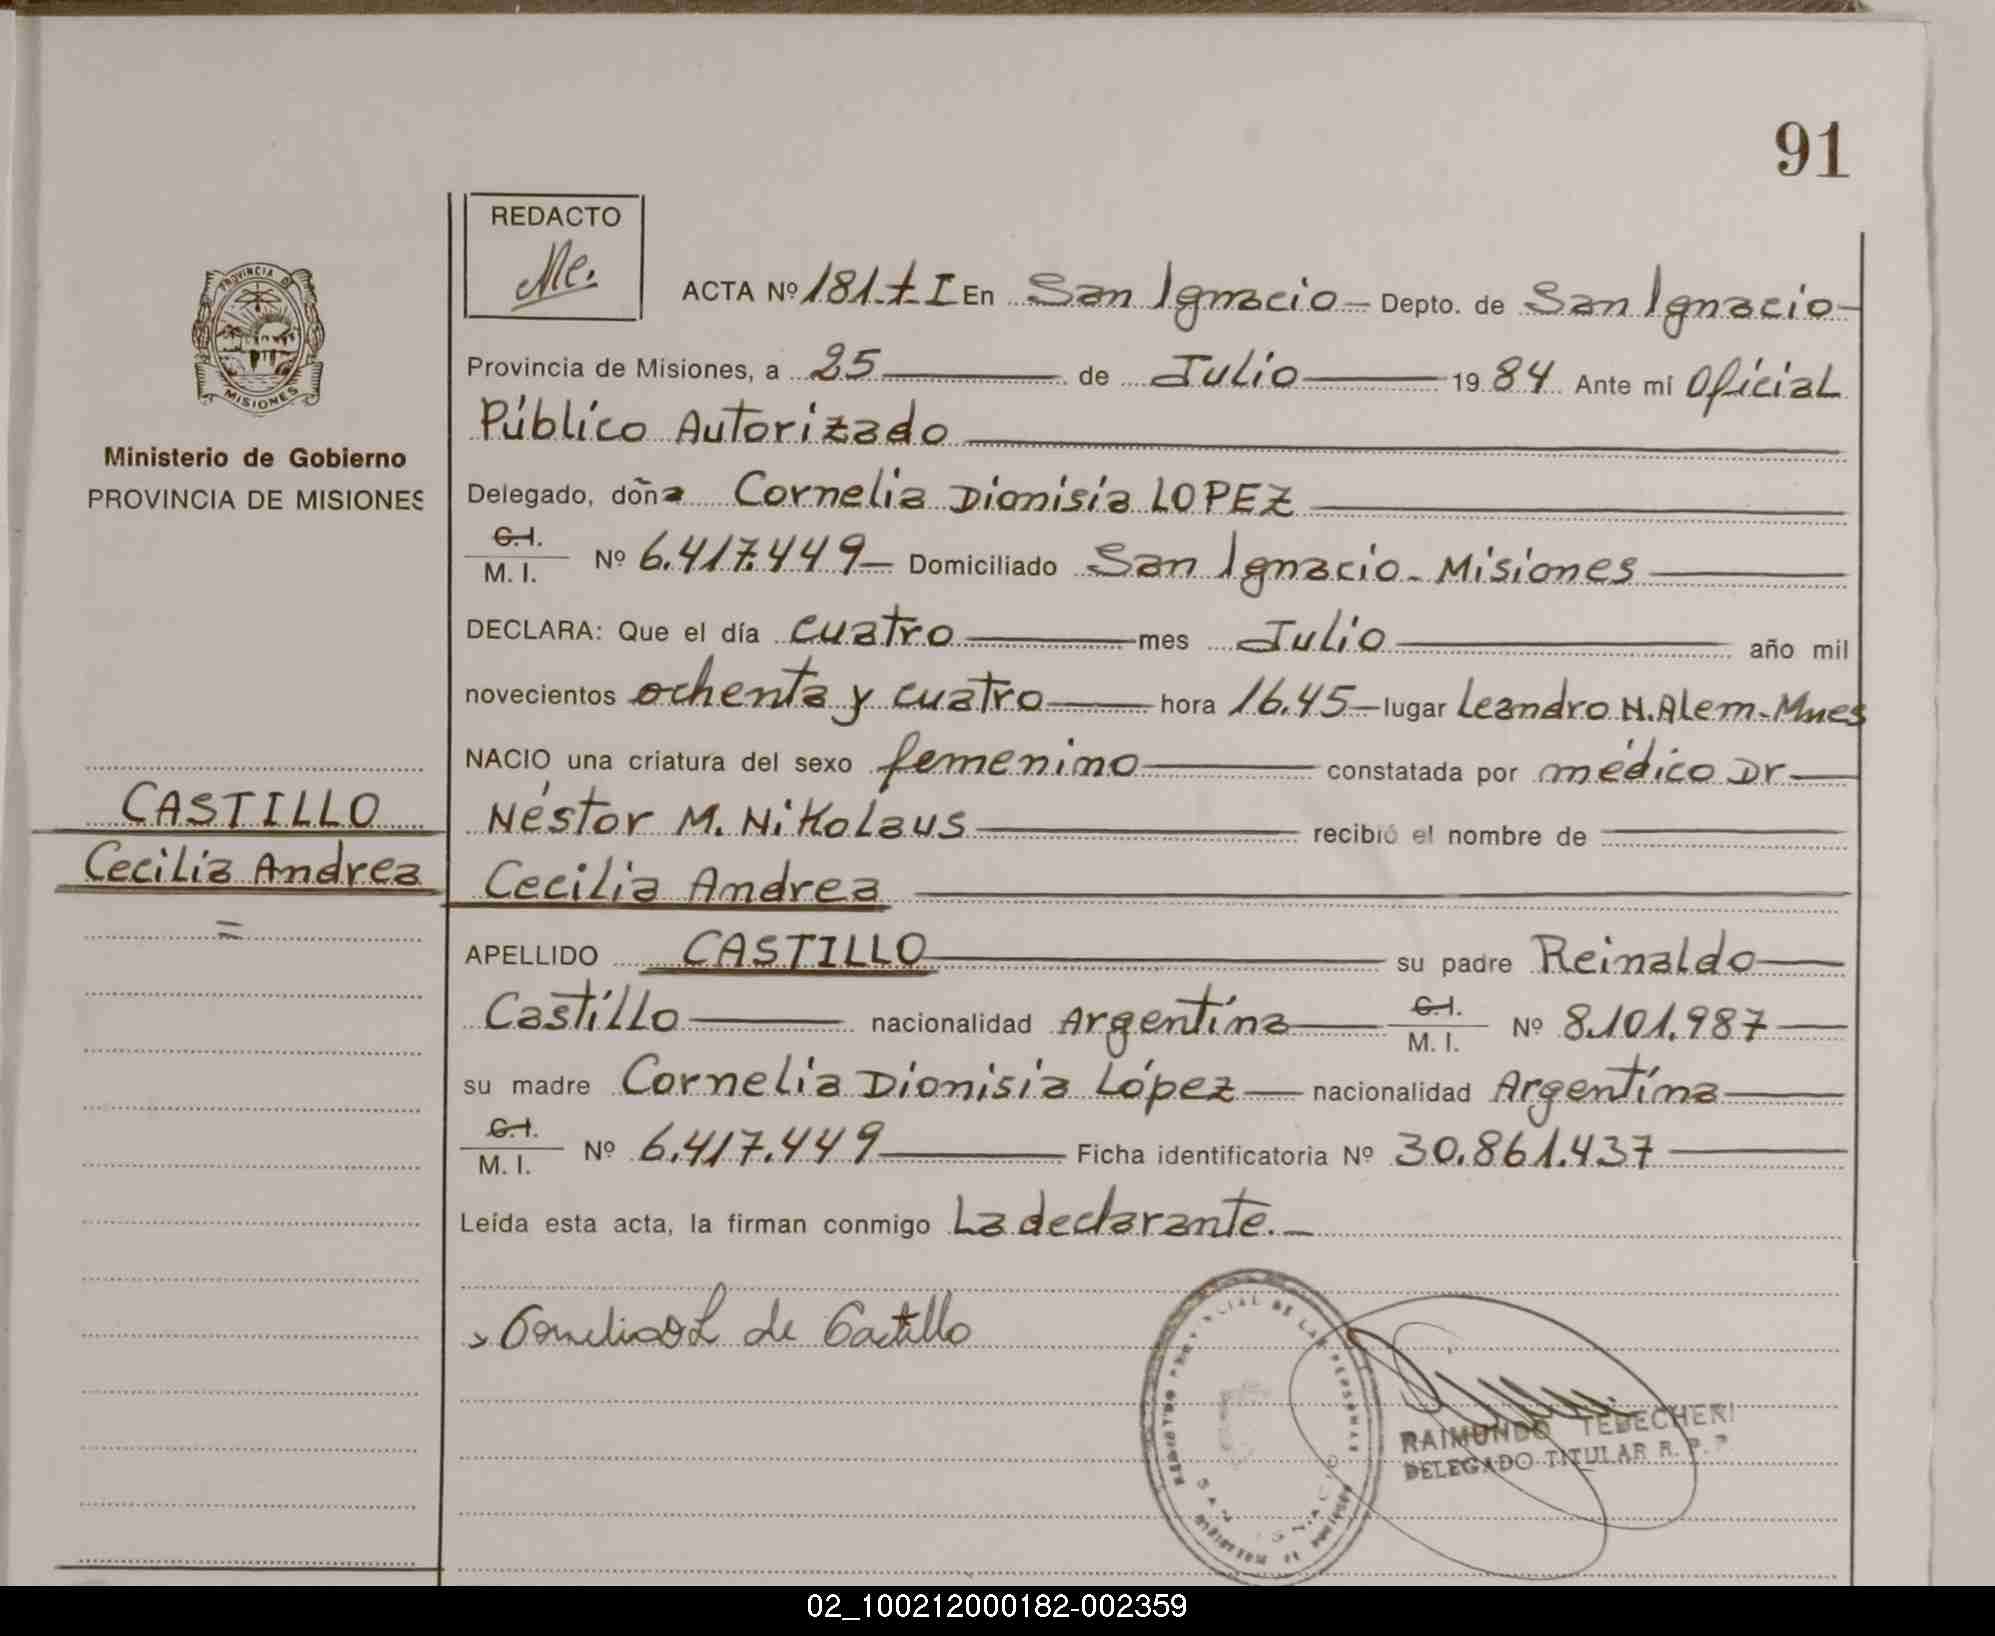 91
REDACTO
Me.
PROVINCIA DE
MISIONES
Ministerio de Gobierno
PROVINCIA DE MISIONES
ACTA Nº 181.t.I En San Ignacio Depto. de San Ignacio
Provincia de Misiones, a 25 de Julio 19 84 Ante mí Oficial
Público Autorizado
Delegado, doña Cornelia Dionisia LOPEZ
C.I.
M. I. Nº 6.417.449 Domiciliado San Ignacio - Misiones
DECLARA: Que el día cuatro mes Julio año mil
novecientos ochenta y cuatro hora 16.45 lugar Leandro N. Alem - Mnes
NACIO una criatura del sexo femenino constatada por médico Dr
Néstor M. Nikolaus recibió el nombre de
Cecilia Andrea
CASTILLO
Cecilia Andrea
=
APELLIDO CASTILLO su padre Reinaldo
Castillo nacionalidad Argentina C.I.
M. I. Nº 8.101.987
su madre Cornelia Dionisia López nacionalidad Argentina
C.I.
M. I. Nº 6.417.449 Ficha identificatoria Nº 30.861.437
Leída esta acta, la firman conmigo La declarante.
Cornelia D L de Castillo
REGISTRO PROVINCIAL DE LAS PERSONAS
SAN IGNACIO
RAIMUNDO TEBECHERI
DELEGADO TITULAR R. P. P.
02_100212000182-002359